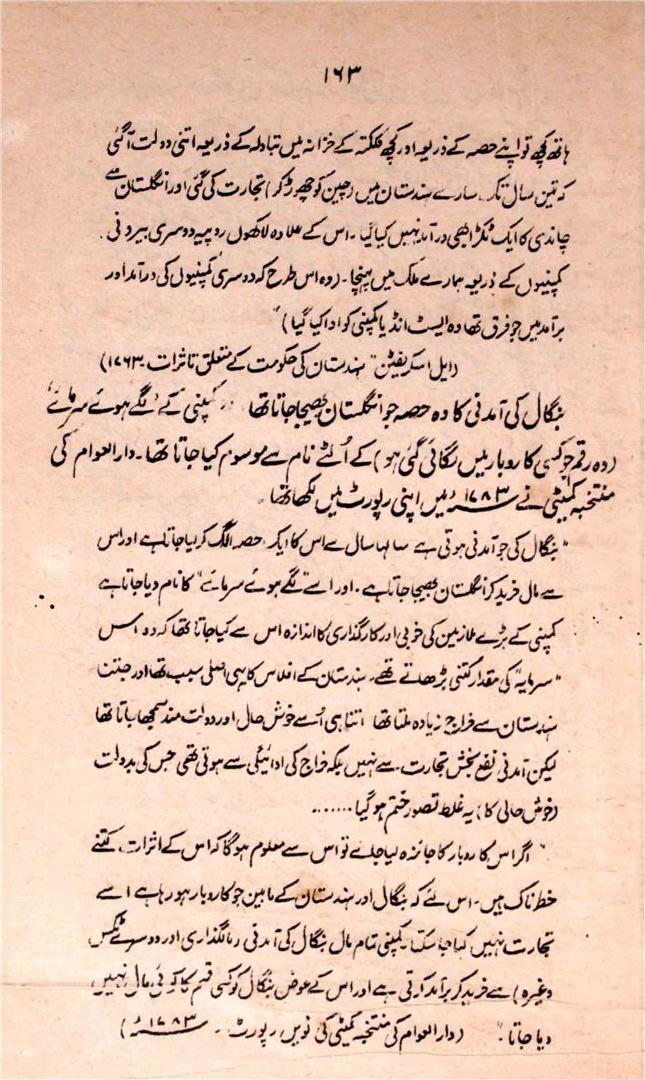 ۱۶۳
ہاتھ کچھ تو اپنے حصہ کے ذریعہ اور کچھ کلکتہ کے خزانہ میں تبادلہ کے ذریعہ اتنی دولت آگئی
کہ تین سال تک سارے ہندستان میں (چین کو چھوڑ کر) تجارت کی گئی اور انگلستان سے
چاندی کا ایک ٹکڑا بھی درآمد نہیں کیا گیا۔ اس کے علاوہ لاکھوں روپیہ دوسری بیرونی
کمپنیوں کے ذریعہ ہمارے ملک میں پہنچا۔ (وہ اس طرح کہ دوسری کمپنیوں کی درآمد اور
برآمد میں جو فرق تھا وہ ایسٹ انڈیا کمپنی کو ادا کیا گیا)"
(ایل اسکریفٹن "ہندستان کی حکومت کے متعلق تاثرات ۔ ۱۷۶۳)
بنگال کی آمدنی کا وہ حصہ جو انگلستان بھیجا جاتا تھا کمپنی کے 'لگے ہوئے سرمائے'
(وہ رقم جو کسی کاروبار میں لگائی گئی ہو) کے الٹے نام سے موسوم کیا جاتا تھا۔ دارالعوام کی
منتخبہ کمیٹی نے ۱۷۸۳ء میں اپنی رپورٹ میں لکھا تھا۔
"بنگال کی جو آمدنی ہوتی ہے سالہا سال سے اس کا ایک حصہ الگ کر لیا جاتا ہے اور اس
سے مال خرید کر انگلستان بھیجا جاتا ہے۔ اور اسے "لگے ہوئے سرمائے" کا نام دیا جاتا ہے
کمپنی کے بڑے ملازمین کی خوبی اور کارگذاری کا اندازہ اس سے کیا جاتا تھا کہ وہ اس
"سرمایہ" کی مقدار کتنی بڑھاتے تھے۔ ہندستان کے افلاس کا یہی اصلی سبب تھا اور جتنا
ہندستان سے خراج زیادہ ملتا تھا اتنا ہی اُسے خوش حال اور دولت مند سمجھا جاتا تھا
لیکن آمدنی نفع بخش تجارت سے نہیں بلکہ خراج کی ادائیگی سے ہوتی تھی جس کی بدولت
(خوش حالی کا) یہ غلط تصور ختم ہو گیا.......
"اگر اس کاروبار کا جائزہ لیا جائے تو اس سے معلوم ہوگا کہ اس کے اثرات کتنے
خطرناک ہیں۔ اس لئے کہ بنگال اور ہندستان کے مابین جو کاروبار ہو رہا ہے اسے
تجارت نہیں کہا جا سکتا۔ کمپنی تمام مال بنگال کی آمدنی (مالگذاری اور دوسرے ٹیکس
وغیرہ) سے خرید کر برآمد کرتی ہے اور اس کے عوض بنگال کو کسی قسم کا کوئی مال نہیں
دیا جاتا۔" (دارالعوام کی منتخبہ کمیٹی کی نویں رپورٹ۔ ۱۷۸۳ء)